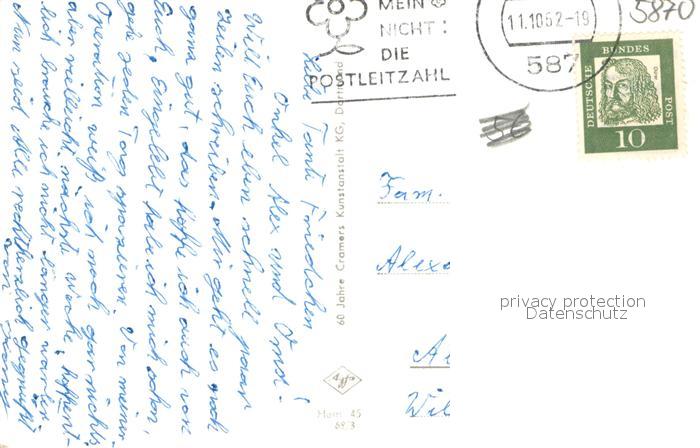 Liebe Tante Friedchen!
Onkel Alex und Omi!
Will Euch eben schnell paar
Zeilen schreiben. Mir geht es noch
ganz gut, das hoffe ich auch von
Euch. Eingelebt habe ich mich schon,
gehe jeden Tag spazieren. Von meiner
Operation weiß ich noch gar nichts
aber vielleicht nächste Woche, hoffent-
lich brauche ich nicht länger warten
Nun seid Alle recht herzlich gegrüßt
von
60 Jahre Cramers Kunstanstalt KG, Dortmund
Agfa
Ham 45
MEIN
NICHT:
DIE
POSTLEITZAHL
11.10.62-19
587
5870
DEUTSCHE BUNDES POST
10
Fam.
Alex
privacy protection
Datenschutz